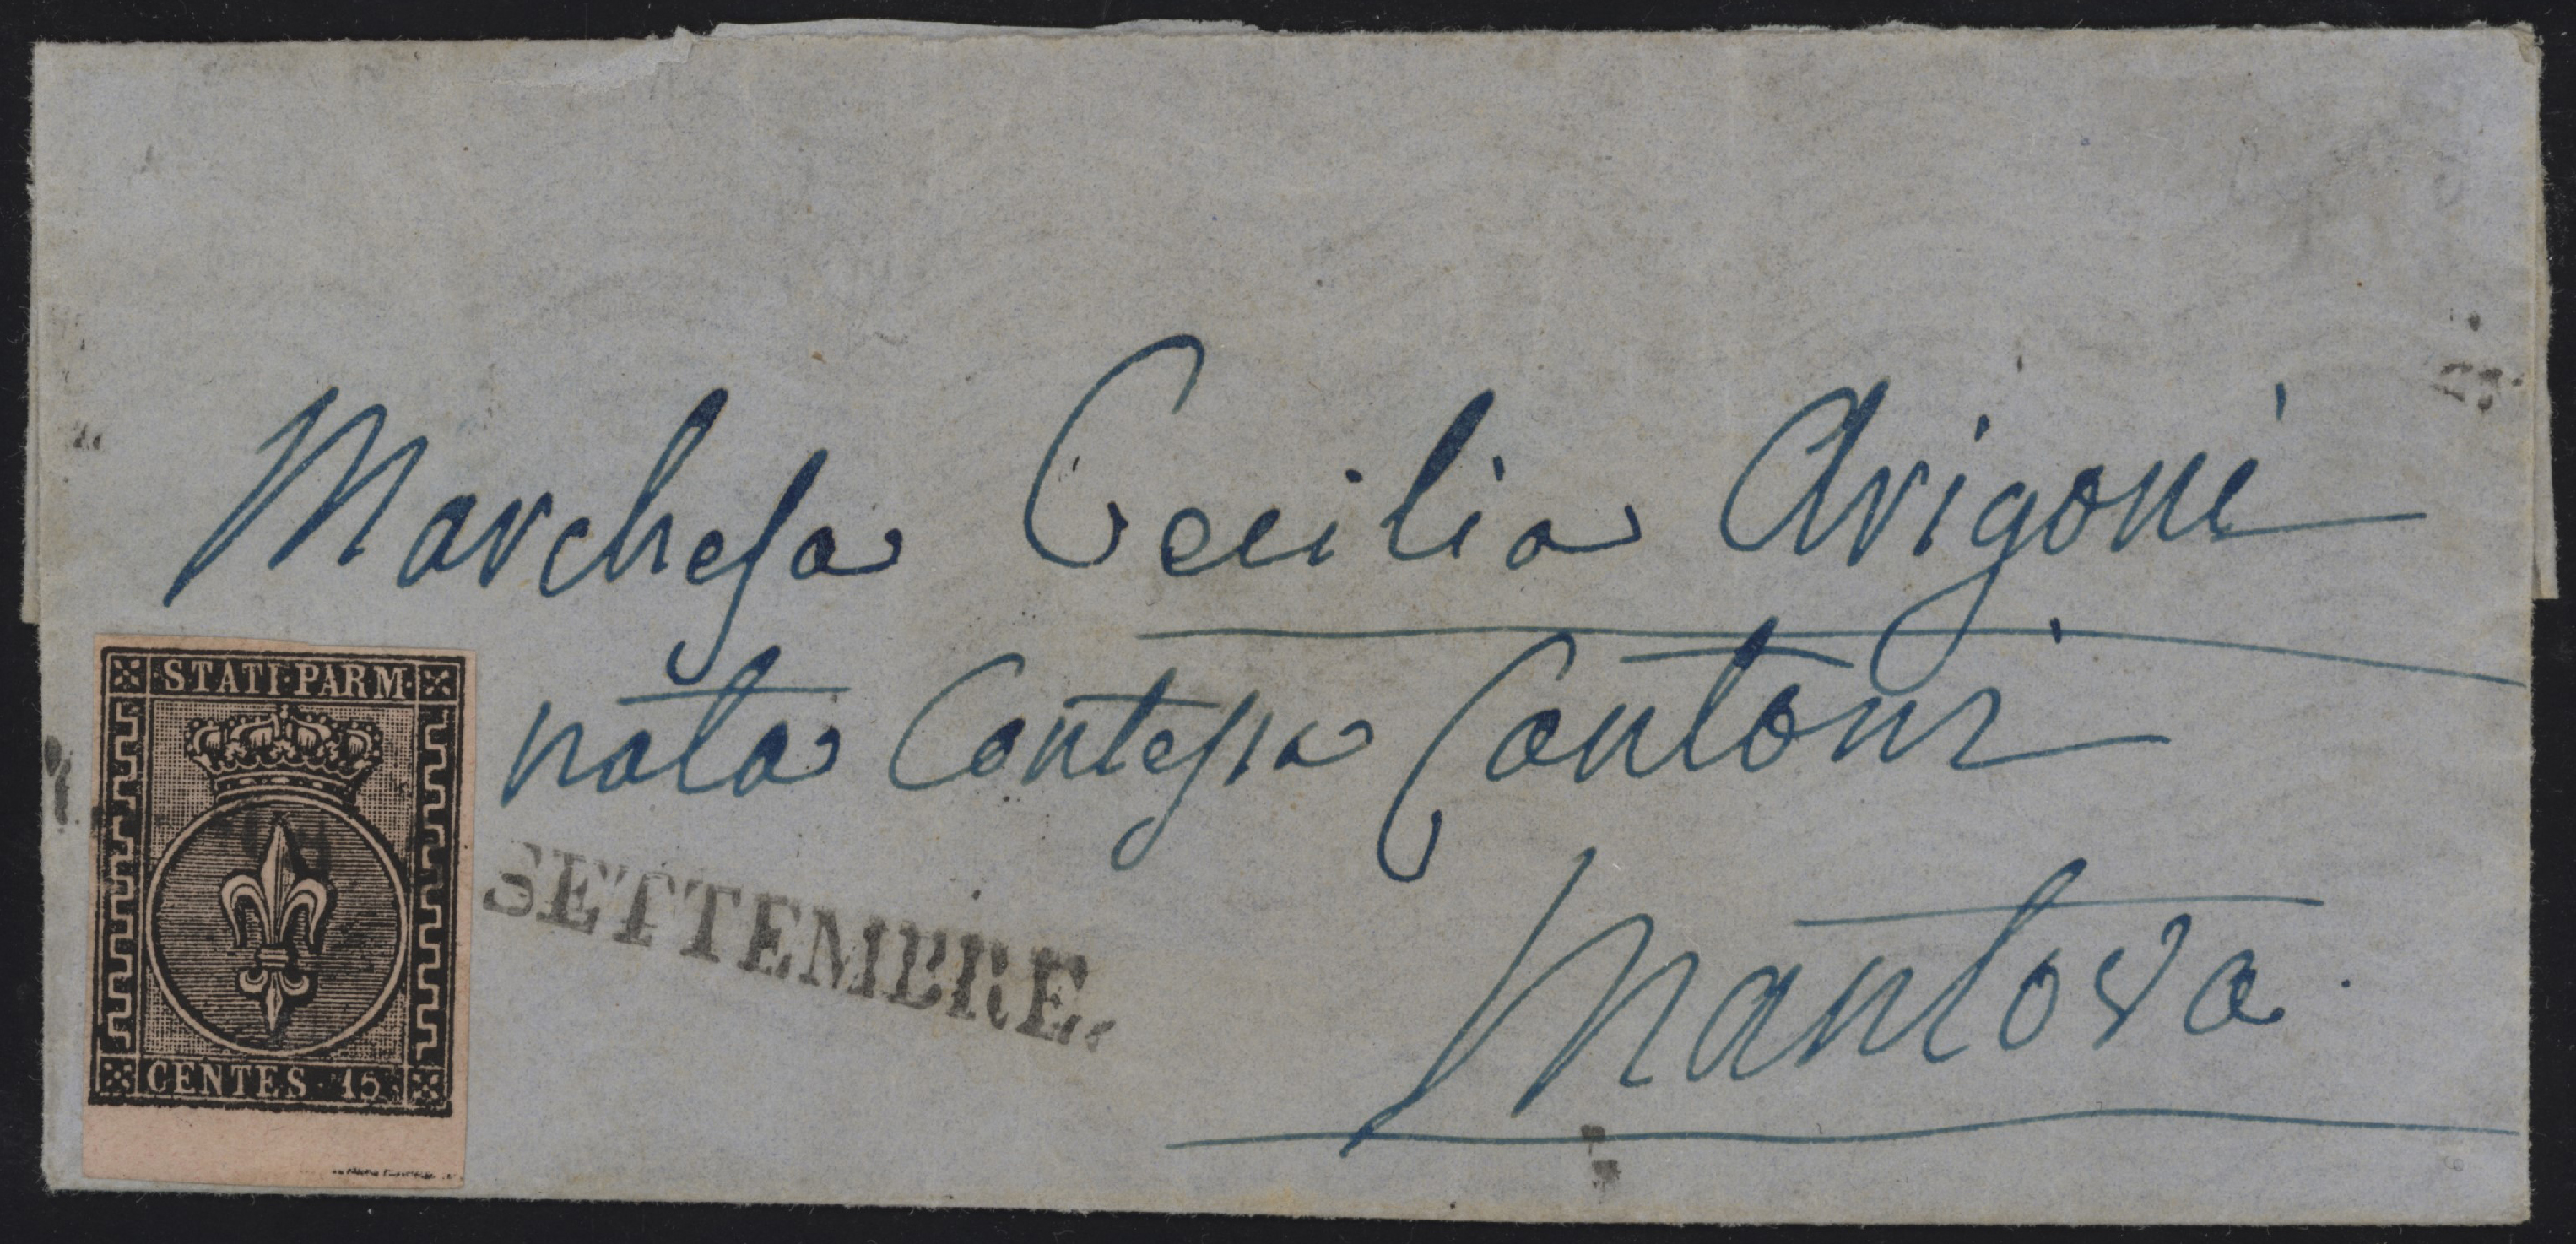 Marchesa Cecilia Arigoni
nata Contessa Cantoni
Mantova.
STATI PARM.
CENTES. 15
SETTEMBRE.